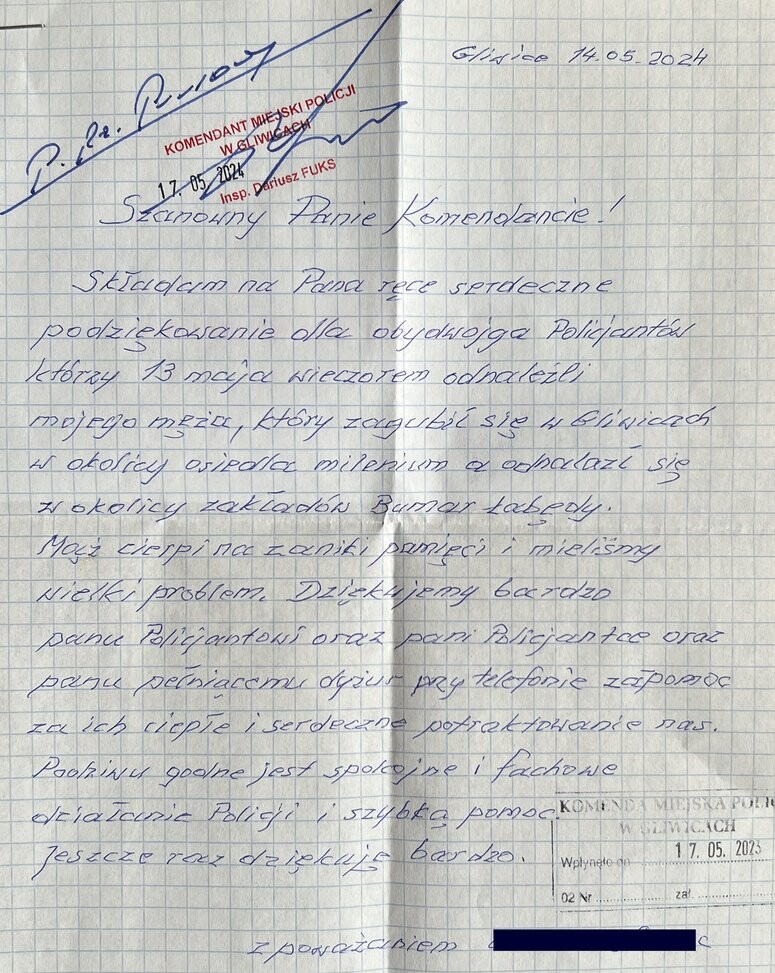 Gliwice 14.05.2024
P.
KOMENDANT MIEJSKI POLICJI
W GLIWICACH
17. 05. 2024
Insp. Dariusz FUKS
Szanowny Panie Komendancie!
Składam na Pana ręce serdeczne
podziękowanie dla obydwojga Policjantów
którzy 13 maja wieczorem odnaleźli
mojego męża, który zagubił się w Gliwicach
w okolicy osiedla milenium a odnalazł się
w okolicy zakładów Bumar Łabędy.
Mąż cierpi na zaniki pamięci i mieliśmy
wielki problem. Dziękujemy bardzo
panu Policjantowi oraz pani Policjantce oraz
panu pełniącemu dyżur przy telefonie za pomoc
za ich ciepłe i serdeczne potraktowanie nas.
Podziwu godne jest spokojne i fachowe
działanie Policji i szybka pomoc.
Jeszcze raz dziękuję bardzo.
KOMENDA MIEJSKA POLICJI
W GLIWICACH
Wpłynęło dn. 17. 05. 2023
02 Nr ............ zał. ............
z poważaniem